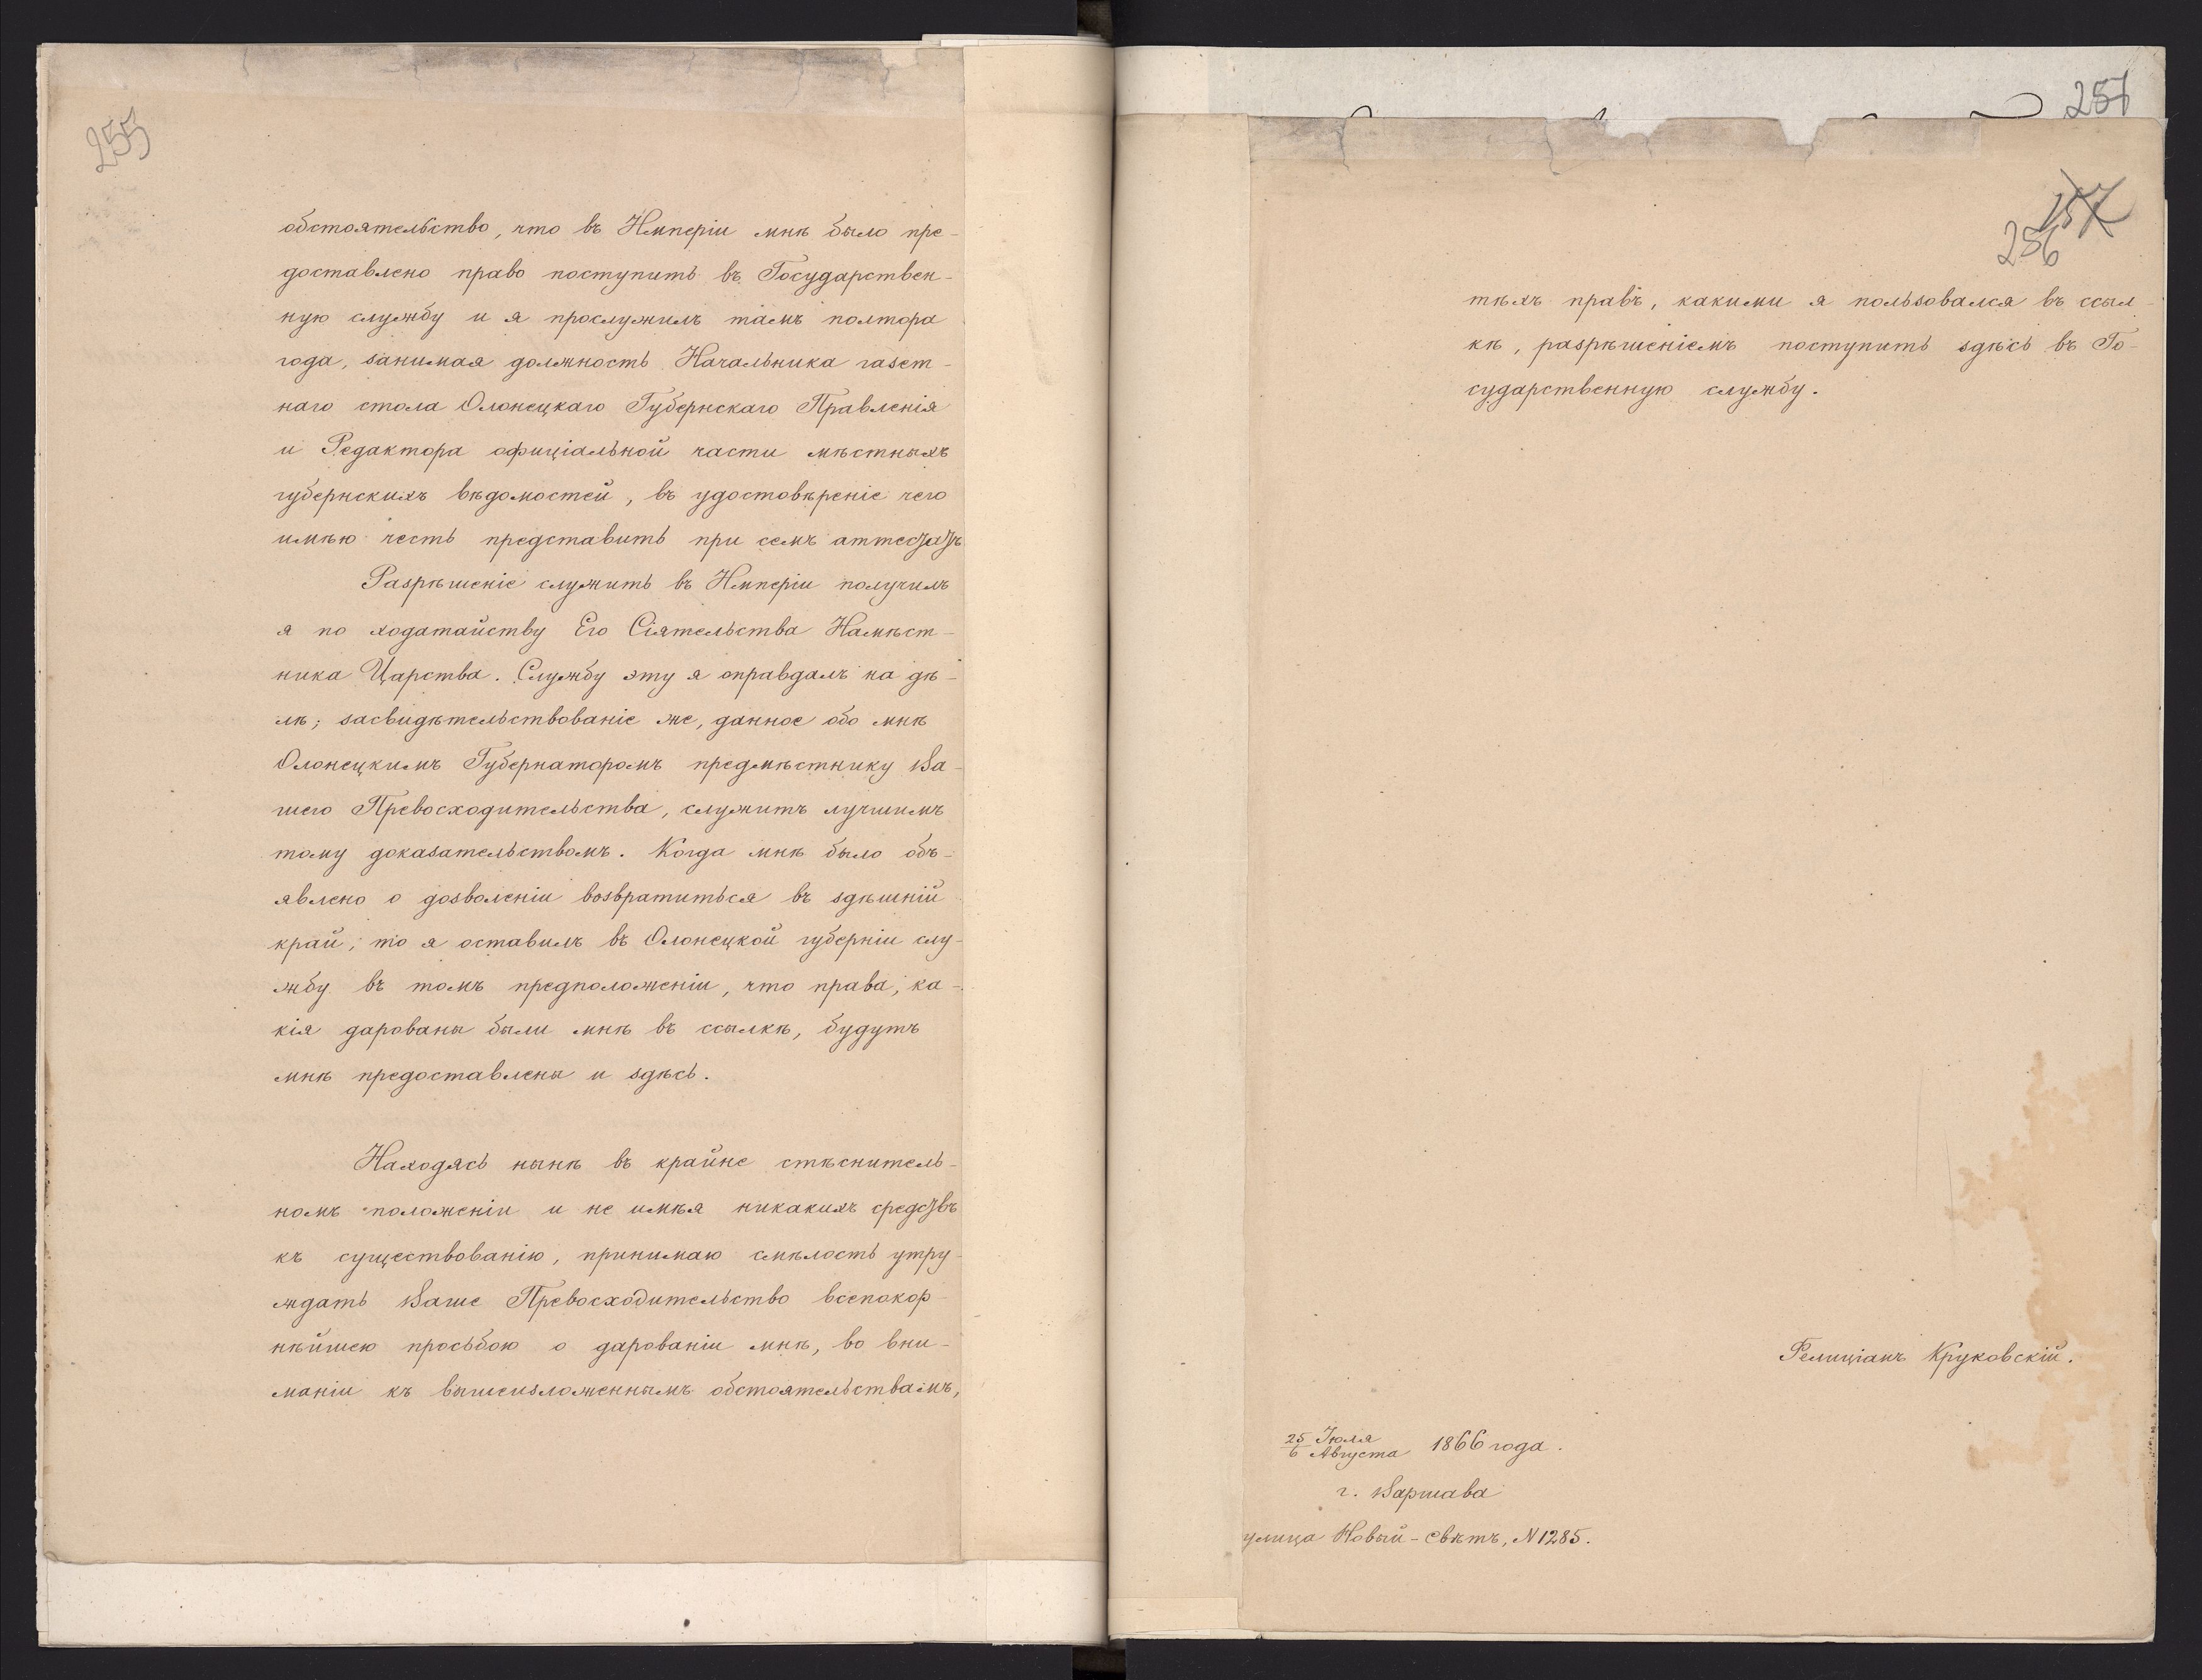 255
обстоятельство, что въ Имперіи мнѣ было пре-
доставлено право поступить въ Государствен-
ную службу и я прослужилъ тамъ полтора
года, занимая должность Начальника газет-
наго стола Олонецкаго Губернскаго Правленія
и Редактора офиціальной части мѣстныхъ
губернскихъ вѣдомостей, въ удостовѣреніе чего
имѣю честь представить при семъ аттестатъ
Разрѣшеніе служить въ Имперіи получилъ
я по ходатайству Его Сіятельства Намѣст-
ника Царства. Службу эту я оправдалъ на дѣ-
лѣ; засвидѣтельствованіе же, данное обо мнѣ
Олонецкимъ Губернаторомъ предмѣстнику Ва-
шего Превосходительства, служитъ лучшимъ
тому доказательствомъ. Когда мнѣ было объ-
явлено о дозволеніи возвратиться въ здѣшній
край, то я оставилъ въ Олонецкой губерніи слу-
жбу въ томъ предположеніи, что права, ка-
кія дарованы были мнѣ въ ссылкѣ, будутъ
мнѣ предоставлены и здѣсь.
Находясь нынѣ въ крайне стѣснитель-
номъ положеніи и не имѣя никакихъ средствъ
къ существованію, принимаю смѣлость утру-
ждать Ваше Превосходительство всепокор-
нѣйшею просьбою о дарованіи мнѣ, во вни-
маніи къ вышеизложеннымъ обстоятельствамъ,
257
157
256
тѣхъ правъ, какими я пользовался въ ссыл-
кѣ, разрѣшеніемъ поступить здѣсь въ Го-
сударственную службу.
Фелиціанъ Круковскій.
25 Іюля
6 Августа 1866 года.
г. Варшава
улица Новый-Свѣтъ, N 1285.